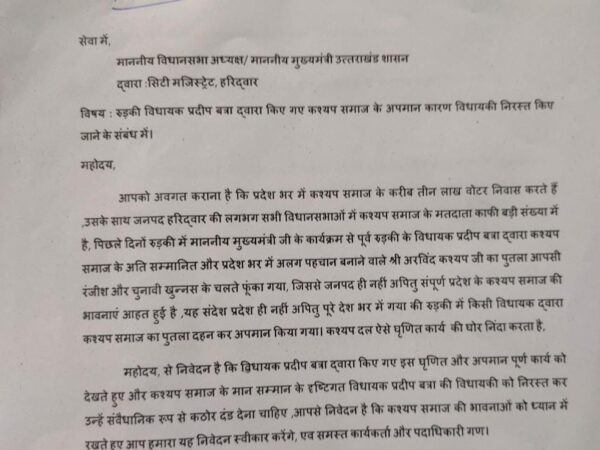 सेवा में,
माननीय विधानसभा अध्यक्ष/ माननीय मुख्यमंत्री उत्तराखंड शासन
द्वारा :सिटी मजिस्ट्रेट, हरिद्वार
विषय : रुड़की विधायक प्रदीप बत्रा द्वारा किए गए कश्यप समाज के अपमान कारण विधायकी निरस्त किए
जाने के संबंध में।
महोदय,
आपको अवगत कराना है कि प्रदेश भर में कश्यप समाज के करीब तीन लाख वोटर निवास करते हैं
,उसके साथ जनपद हरिद्वार की लगभग सभी विधानसभाओं में कश्यप समाज के मतदाता काफी बड़ी संख्या में
है, पिछले दिनों रुड़की में माननीय मुख्यमंत्री जी के कार्यक्रम से पूर्व रुड़की के विधायक प्रदीप बत्रा द्वारा कश्यप
समाज के अति सम्मानित और प्रदेश भर में अलग पहचान बनाने वाले श्री अरविंद कश्यप जी का पुतला आपसी
रंजीश और चुनावी खुन्नस के चलते फूंका गया, जिससे जनपद ही नहीं अपितु संपूर्ण प्रदेश के कश्यप समाज की
भावनाएं आहत हुई है ,यह संदेश प्रदेश ही नहीं अपितु पूरे देश में गया की रुड़की में किसी विधायक द्वारा
कश्यप समाज का पुतला दहन कर अपमान किया गया। कश्यप दल ऐसे घृणित कार्य की घोर निंदा करता है,
महोदय, से निवेदन है कि विधायक प्रदीप बत्रा द्वारा किए गए इस घृणित और अपमान पूर्ण कार्य को
देखते हुए और कश्यप समाज के मान सम्मान के दृष्टिगत विधायक प्रदीप बत्रा की विधायकी को निरस्त कर
उन्हें संवैधानिक रूप से कठोर दंड देना चाहिए ,आपसे निवेदन है कि कश्यप समाज की भावनाओं को ध्यान में
रखते हुए आप हमारा यह निवेदन स्वीकार करेंगे, एव समस्त कार्यकर्ता और पदाधिकारी गण।